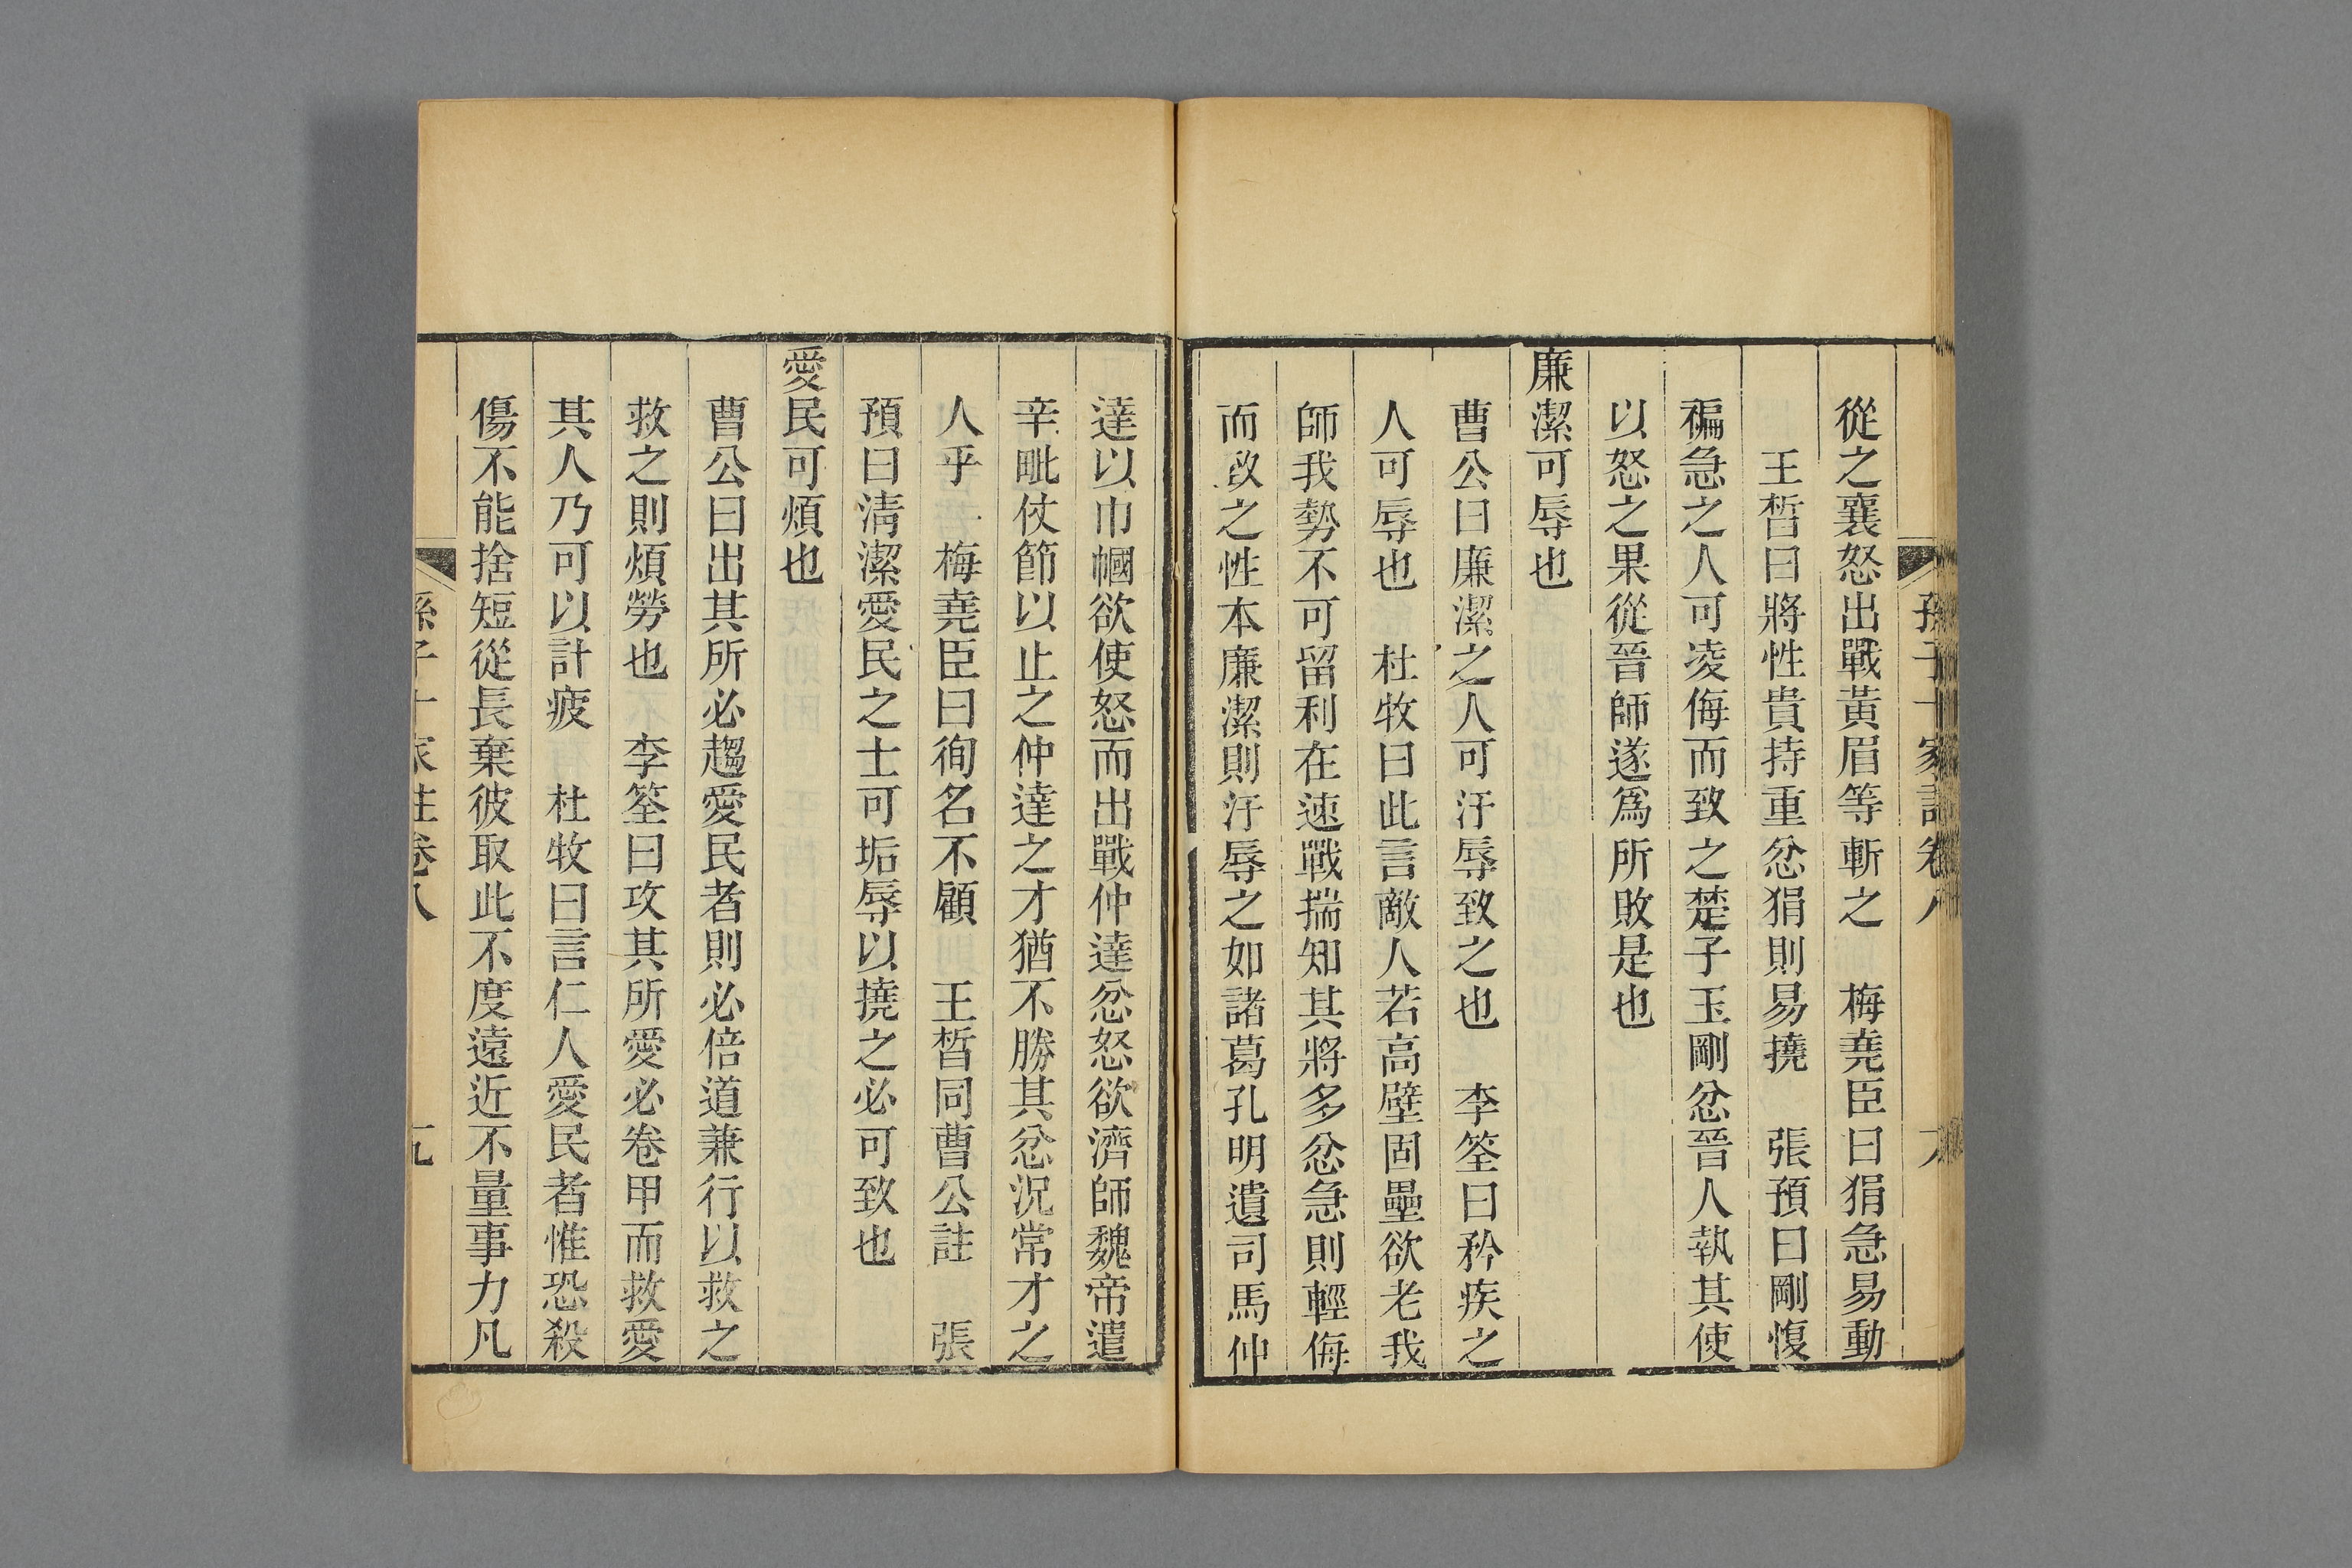 孫子十家註卷八
從之襄怒出戰黃眉等斬之　梅堯臣曰狷急易動
王晳曰將性貴持重忿狷則易撓　張預曰剛愎
褊急之人可凌侮而致之楚子玉剛忿晉人執其使
以怒之果從晉師遂爲所敗是也
廉潔可辱也
曹公曰廉潔之人可汙辱致之也　李筌曰矜疾之
人可辱也　杜牧曰此言敵人若高壁固壘欲老我
師我勢不可留利在速戰揣知其將多忿急則輕侮
而致之性本廉潔則汙辱之如諸葛孔明遺司馬仲
達以巾幗欲使怒而出戰仲達忿怒欲濟師魏帝遣
辛毗仗節以止之仲達之才猶不勝其忿況常才之
人乎　梅堯臣曰徇名不顧　王晳同曹公註　張
預曰清潔愛民之士可垢辱以撓之必可致也
愛民可煩也
曹公曰出其所必趨愛民者則必倍道兼行以救之
救之則煩勞也　李筌曰攻其所愛必卷甲而救愛
其人乃可以計疲　杜牧曰言仁人愛民者惟恐殺
傷不能捨短從長棄彼取此不度遠近不量事力凡
孫子十家註卷八　九